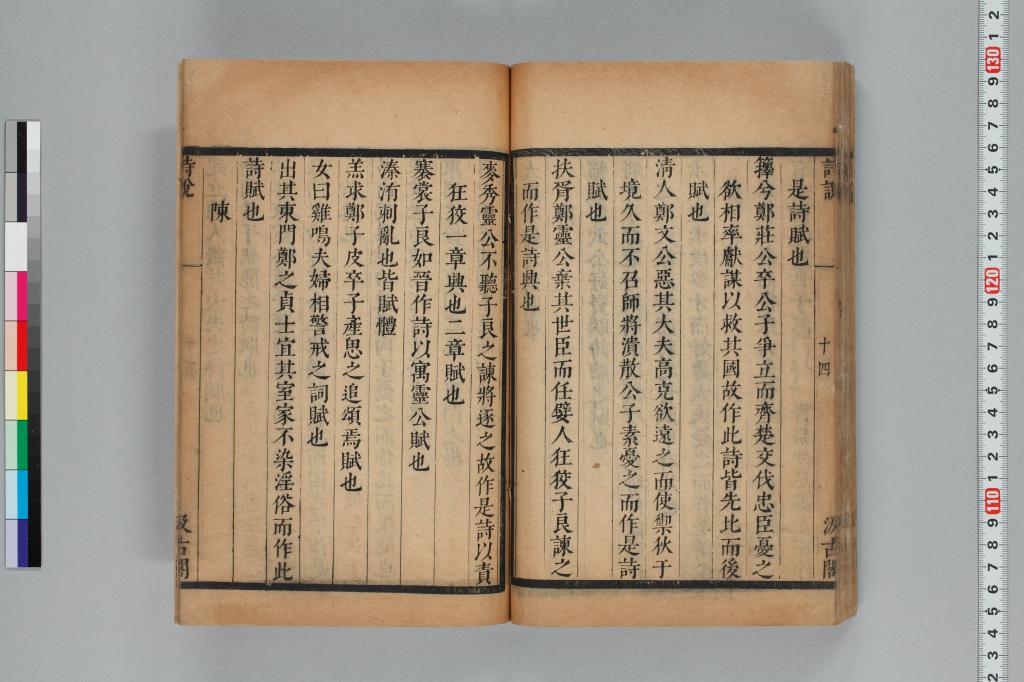 詩說
十四
汲古閣
是詩賦也
籜兮鄭莊公卒公子爭立而齊楚交伐忠臣憂之
欲相率獻謀以救其國故作此詩皆先比而後
賦也
清人鄭文公惡其大夫高克欲遠之而使禦狄于
境久而不召師將潰散公子素憂之而作是詩
賦也
扶胥鄭靈公棄其世臣而任嬖人狂狡子良諫之
而作是詩興也
麥秀靈公不聽子良之諫將逐之故作是詩以責
狂狡一章興也二章賦也
褰裳子良如晉作詩以寓靈公賦也
溱洧刺亂也皆賦體
羔求鄭子皮卒子產思之追頌焉賦也
女曰雞鳴夫婦相警戒之詞賦也
出其東門鄭之貞士宜其室家不染淫俗而作此
詩賦也
陳
詩說
汲古閣